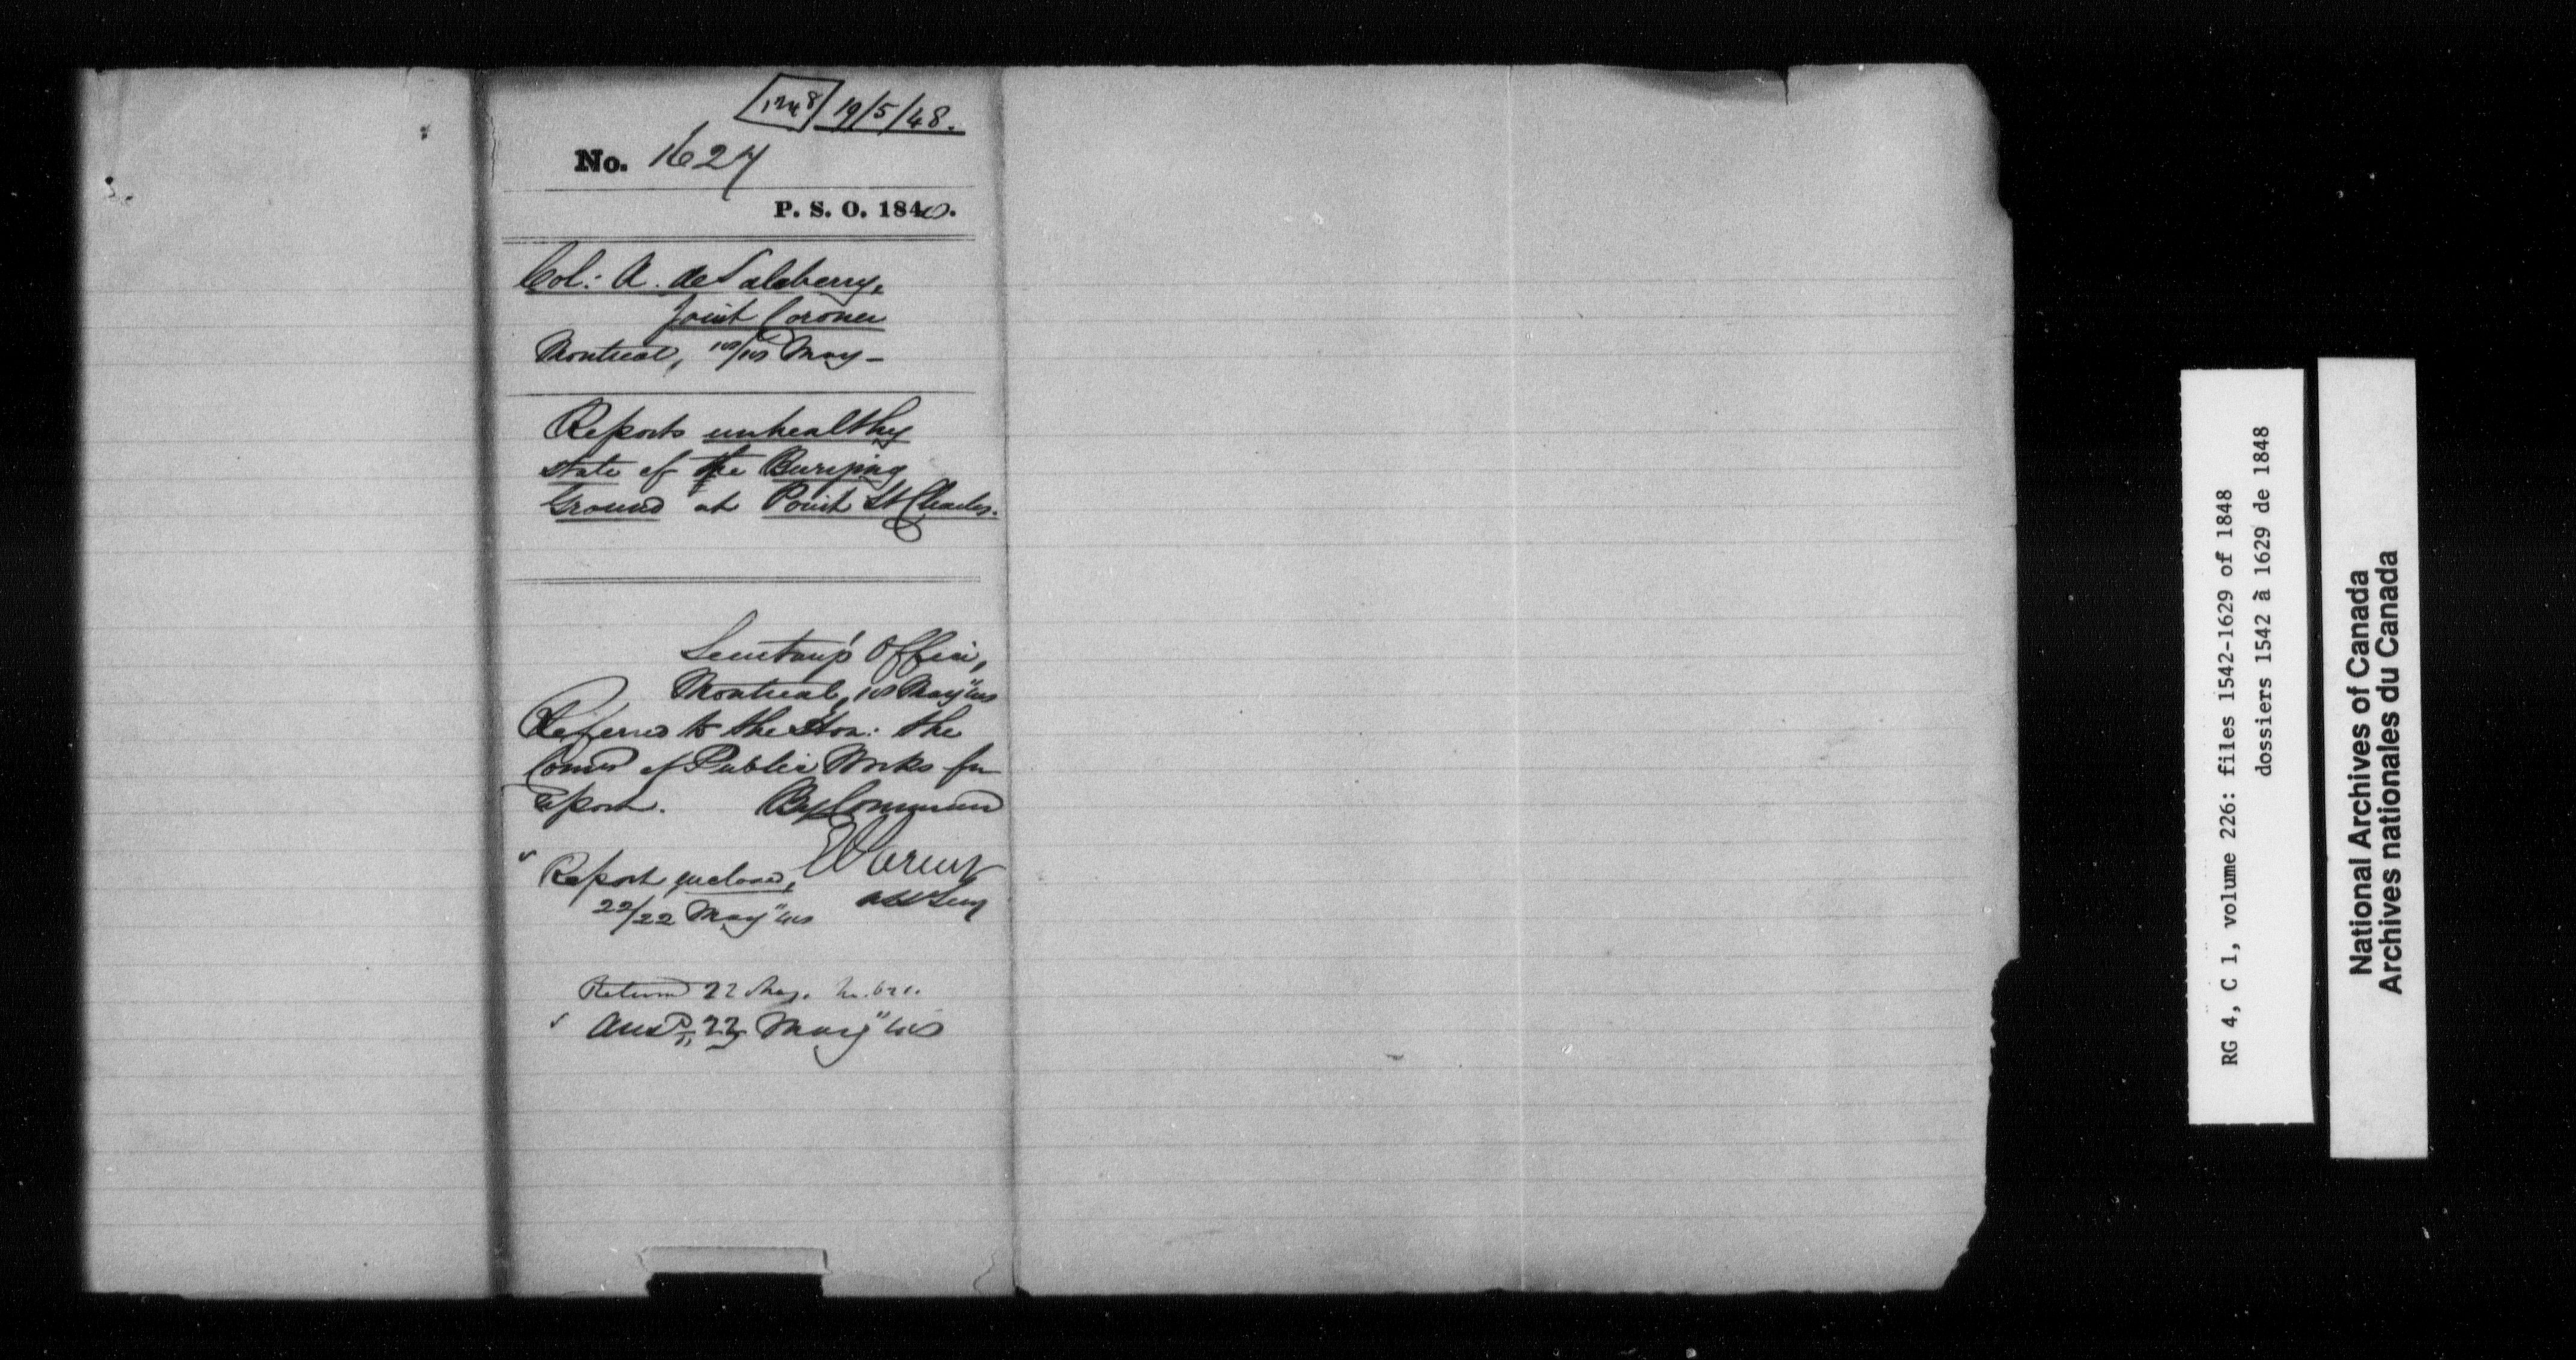 1248 19/5/48.
No. 1624
P. S. O. 1848.
Col: A. de Salaberry,
Joint Coroner
Montreal, 18/18 May -
Reports unhealthy
state of the Burying
Ground at Point St Charles.
Secretary's Office,
Montreal, 18 May "48
Referred to the Hon: the
Comrs of Public Works for
report. By Command
E Parent
Asst Secy
Report enclosed,
22/22 May "48
Return 22 May. No. 621.
Ansd 23 May "48
RG 4, C 1, volume 226: files 1542-1629 of 1848
dossiers 1542 à 1629 de 1848
National Archives of Canada
Archives nationales du Canada